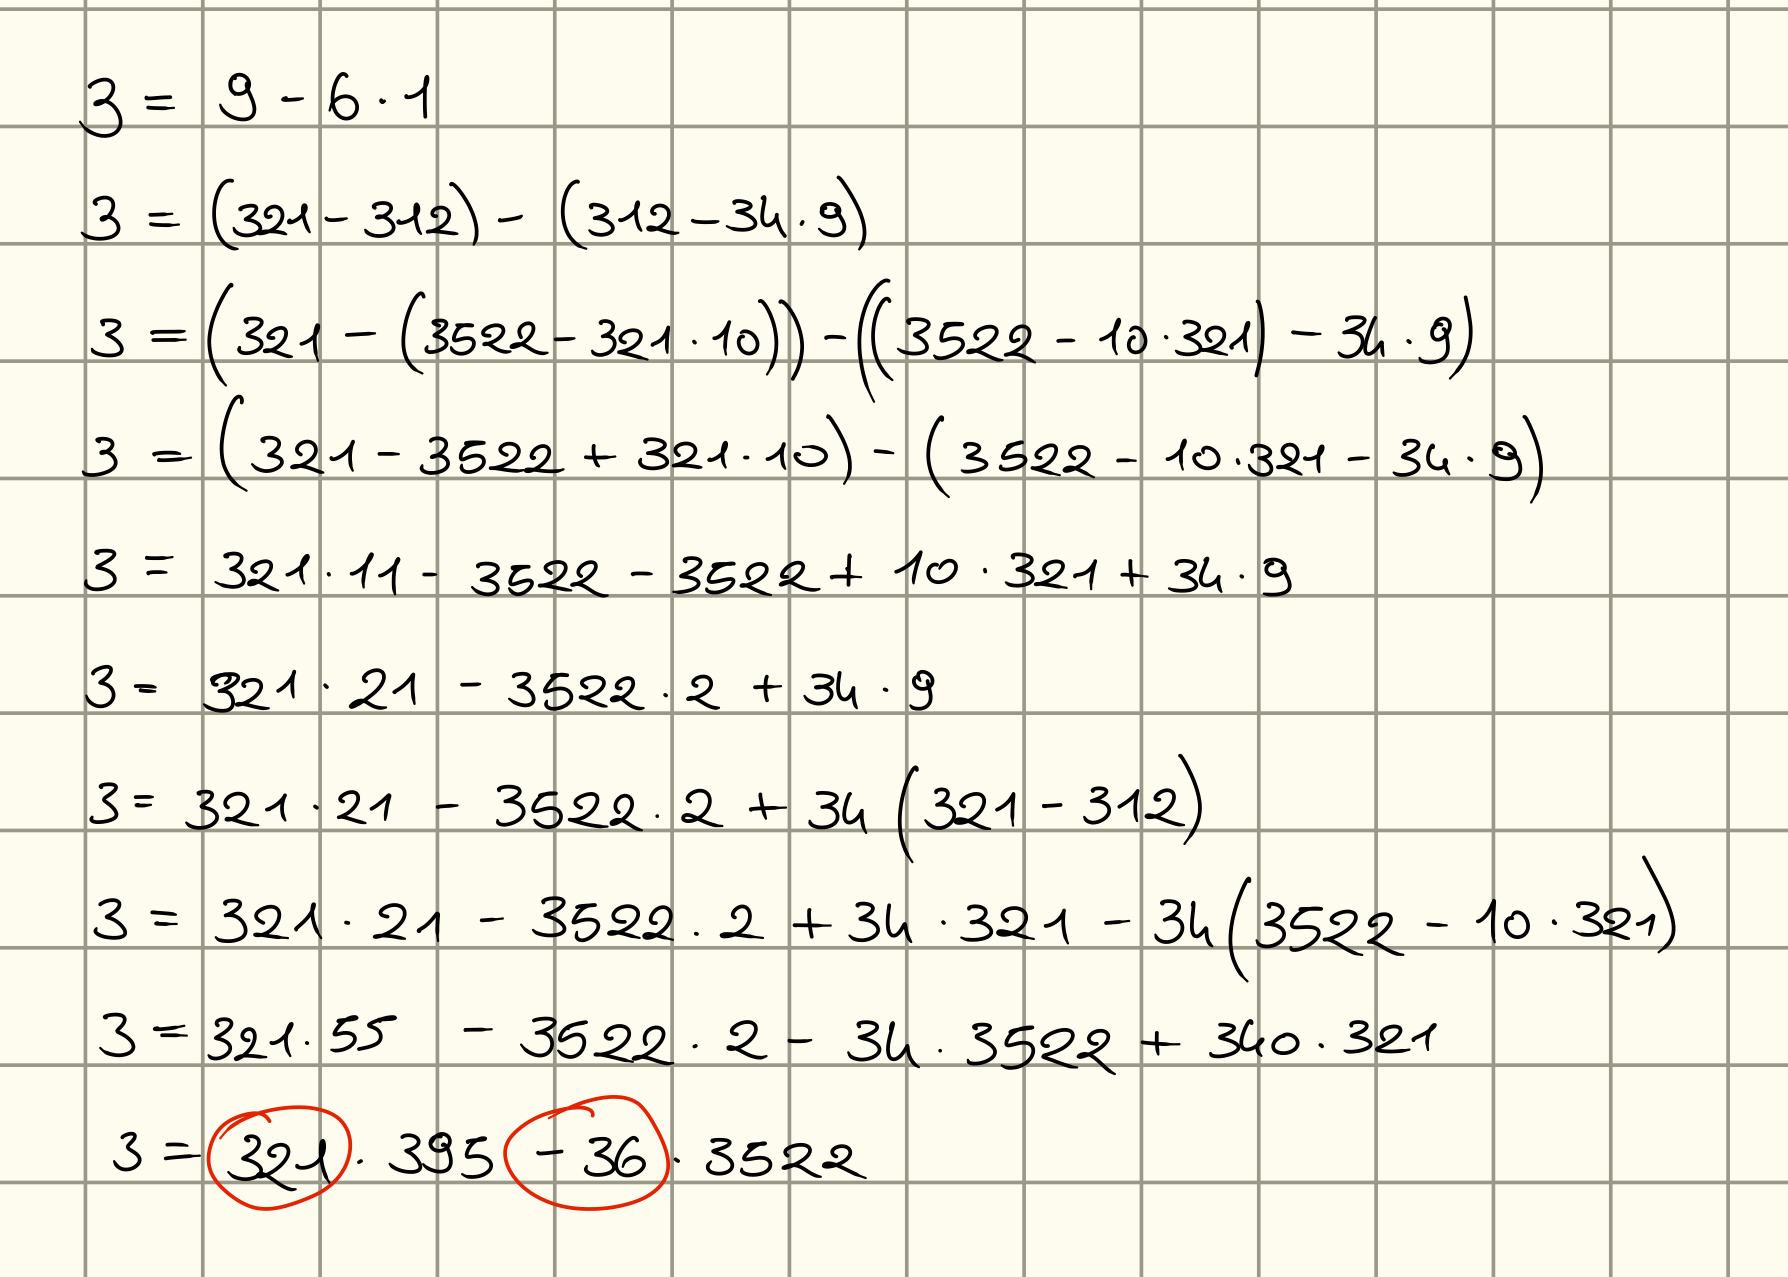 3 = 9 - 6 · 1
3 = (321 - 312) - (312 - 34 · 9)
3 = (321 - (3522 - 321 · 10)) - ((3522 - 10 · 321) - 34 · 9)
3 = (321 - 3522 + 321 · 10) - (3522 - 10 · 321 - 34 · 9)
3 = 321 · 11 - 3522 - 3522 + 10 · 321 + 34 · 9
3 = 321 · 21 - 3522 · 2 + 34 · 9
3 = 321 · 21 - 3522 · 2 + 34 (321 - 312)
3 = 321 · 21 - 3522 · 2 + 34 · 321 - 34 (3522 - 10 · 321)
3 = 321 · 55 - 3522 · 2 - 34 · 3522 + 340 · 321
3 = 321 · 395 - 36 · 3522